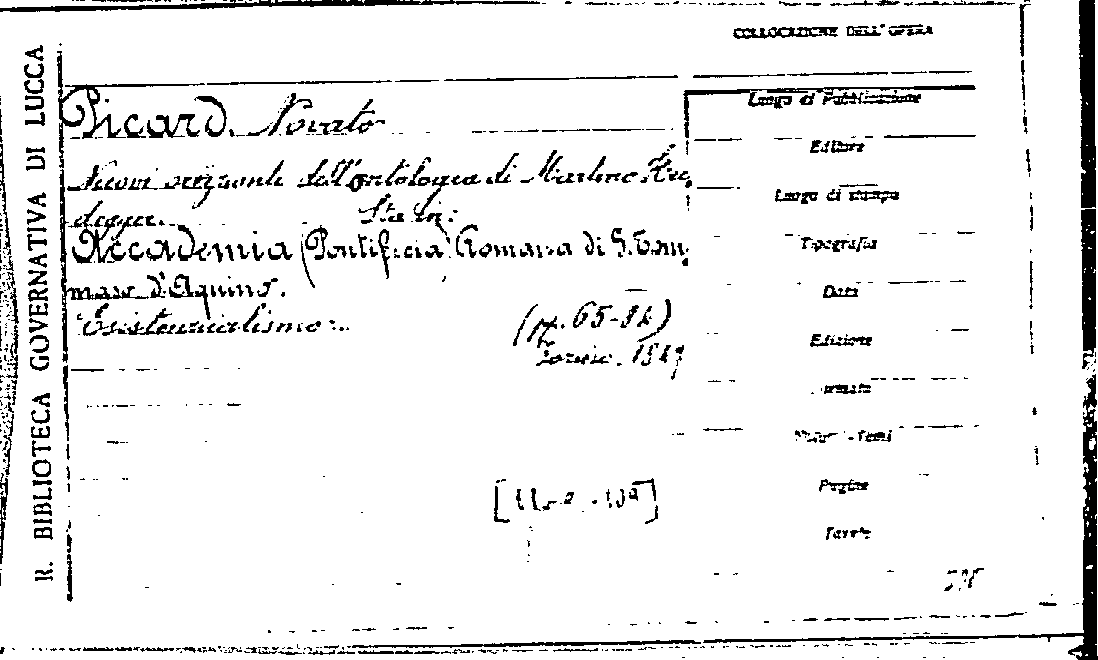 R. BIBLIOTECA GOVERNATIVA DI LUCCA
COLLOCAZIONE DELL'OPERA
Picard, Novato
Nuovi orizzonti dell'ontologia di Martino Hei,
degger. Sta in:
Accademia Pontificia Romana di S. Tom,
maso d'Aquino.
Esistenzialismo..
(pp. 65-84)
Torino. 1947
Luogo di Pubblicazione
Editore
Luogo di stampa
Tipografia
Data
Edizione
Formato
Pagine
Tavole